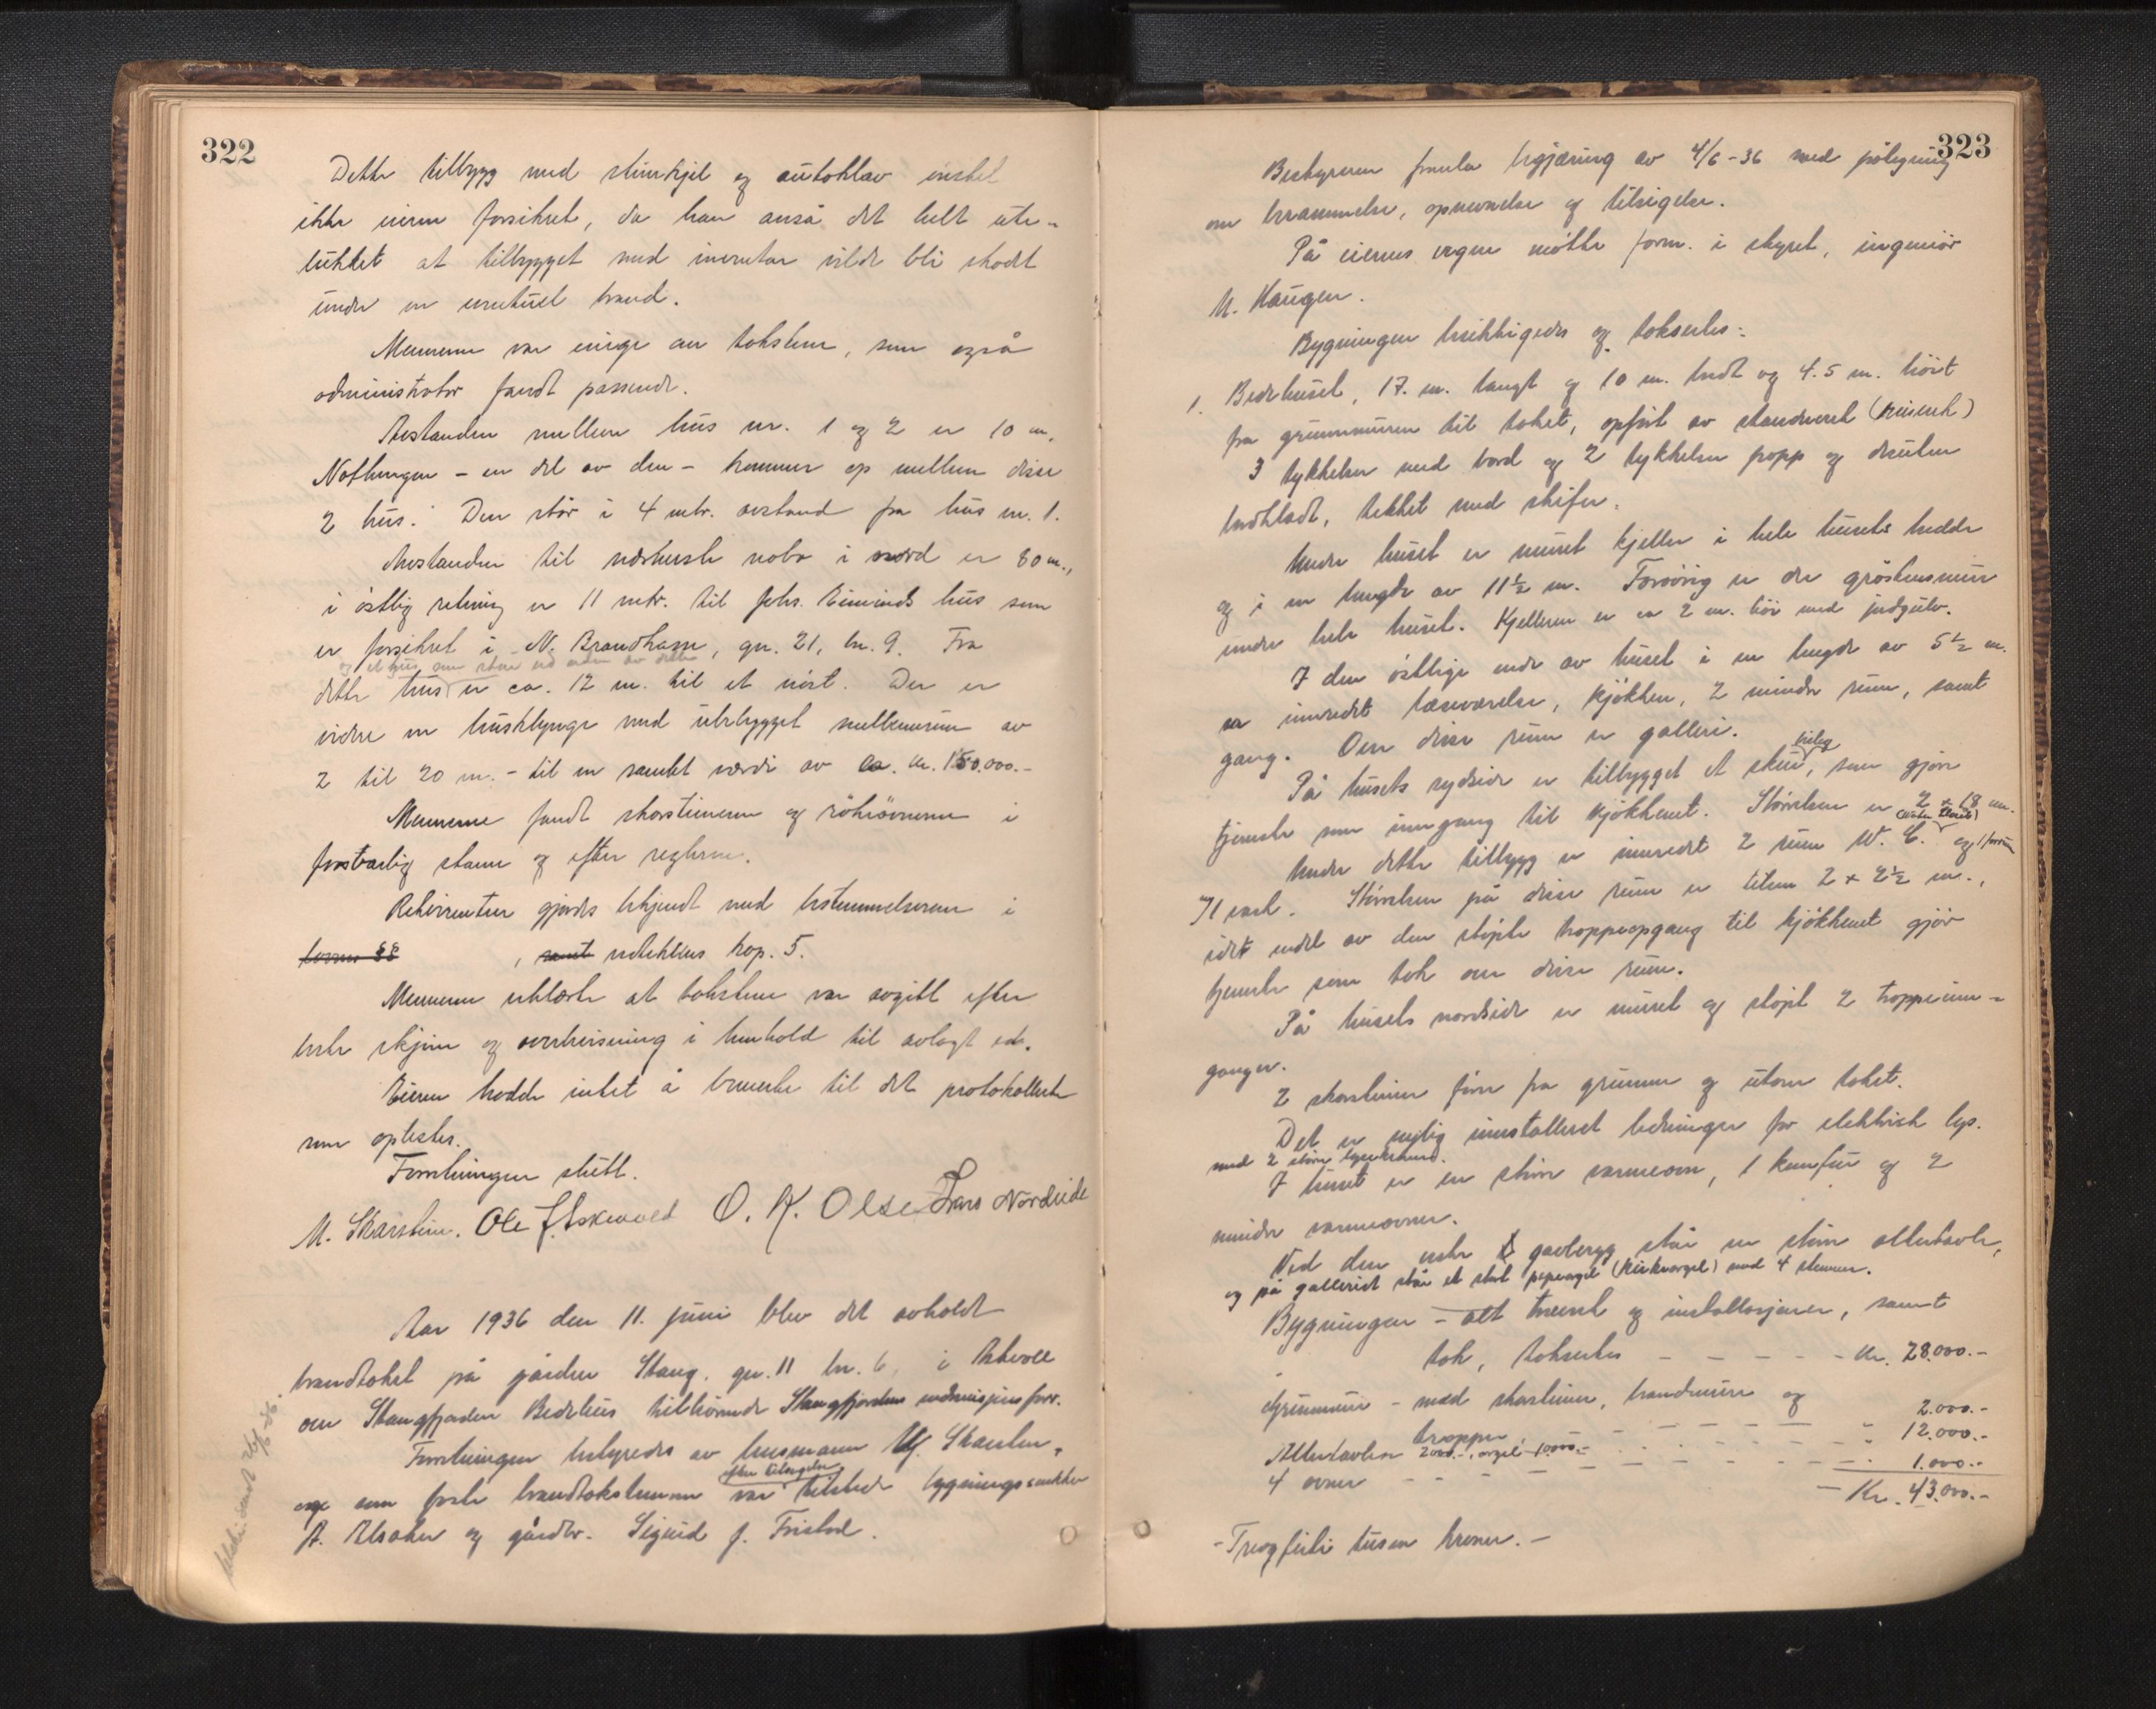 322
Dette tilbygg med stimkjel og autoklav ønsket
ikke eieren forsikret, da han anså det helt ute-
lukket at tilbygget med inventar vilde bli skadt
under en eventuel brand.
Mennene var enige om taksten, som også
administrator fandt passende.
Avstanden mellem hus nr. 1 og 2 er 10 m.
Nothengen - en del av den - kommer op mellem disse
2 hus. Den står i 4 mtr. avstand fra hus nr. 1.
Avstanden til nærmeste nabo i nord er 80 m.,
i østlig retning er 11 mtr. til Johs. Eiminds hus som
er forsikret i N. Brandkasse, gn. 21, bn. 9. Fra
og et hus som står ved siden av dette
dette hus er ca. 12 m. til et nøst. Der er
videre en husklynge med utebygget mellemrum av
2 til 20 m. - til en samlet værdi av ca. kr. 150.000.-
Mennene fandt skorstenene og røkovnene i
forsvarlig stann og efter reglerne.
Rekvirenten gjordes bekjendt med bestemmelserne i
lovens §§ , samt vedtektens kap. 5.
Mennene erklærte at taksten var avgitt efter
beste skjønn og overbevisning i henhold til avlagt ed.
Eieren hadde intet å bemerke til det protokollerte
som oplestes.
Forretningen slutt.
M. Skarstein. Ole J. Askevold O. K. Olsen Lars Nordeide
Aar 1936 den 11. juni blev det avholdt
brandtakst på gården Stang, gn. 11 bn. 6, i Askvoll
over Stangfjorden Bedehus tilhørende Stangfjordens indremisjonsforr.
Forretningen bestyredes av lensmann M. Skarstein,
efter tilsigelse
og som faste brandtakstmenn var tilstede bygningssnekker
A. Alsaker og gårdbr. Sigurd J. Fristad.
323
Bestyreren fremla begjæring av 4/6-36 med påtegning
om berammelse, opnevnelse og tilsigelse.
På eiernes vegne møtte form. i styret, ingeniør
M. Haugen.
Bygningen besiktigedes og takseres:
1. Bedehuset, 17. m. langt og 10 m. bredt og 4.5 m. høit
fra grunnmuren til taket, opført av standverk (reisverk)
3 tykkelser med bord og 2 tykkelser papp og desuten
bordklædt, tekket med skifer.
Under huset er muret kjeller i hele husets bredde
og i en lengde av 11½ m. Forøvrig er der gråstensmur
under hele huset. Kjelleren er ca 2 m. høi med jordgulv.
I den østlige ende av huset i en lengde av 5½ m.
er innredet læseværelse, kjøkken, 2 mindre rum, samt
gang. Over disse rum er galleri.
På husets sydside er tilbygget et skur, som gjør
tjeneste som inngang til kjøkkenet. Størrelsen er 2 x 1,8 m.
(Water Closets)
Under dette tilbygg er innredet 2 rum W. C. og 1 forrum
Størrelsen på disse rum er tilsm 2 x 2½ m.,
idet endel av den støpte trappeopgang til kjøkkenet gjør
tjeneste som tak over disse rum.
På husets nordside er muret og støpt 2 trappeinn-
ganger.
2 skorstener fører fra grunnen og utover taket.
Det er nylig innstalleret ledninger for elektrisk lys.
med 2 større lysekroner.
I huset er en større varmeovn, 1 komfur og 2
mindre varmeovner.
Ved den vestre gavlvegg står en større altertavle,
og på galleriet står et stort pipeorgel (kirkeorgel) med 4 stemmer.
Bygningen - alt treverk og installasjoner, samt
tak, takseres - - - - - kr. 28.000.-
Grunnmur - med skorstener, brandmure og
trapper - - - - - " 2.000.-
Altertavlen 2000.-, orgel 10.000.- - - - - " 12.000.-
4 ovner - - - - - " 1.000.-
- Kr. 43.000.-
- Treogførti tusen kroner. -